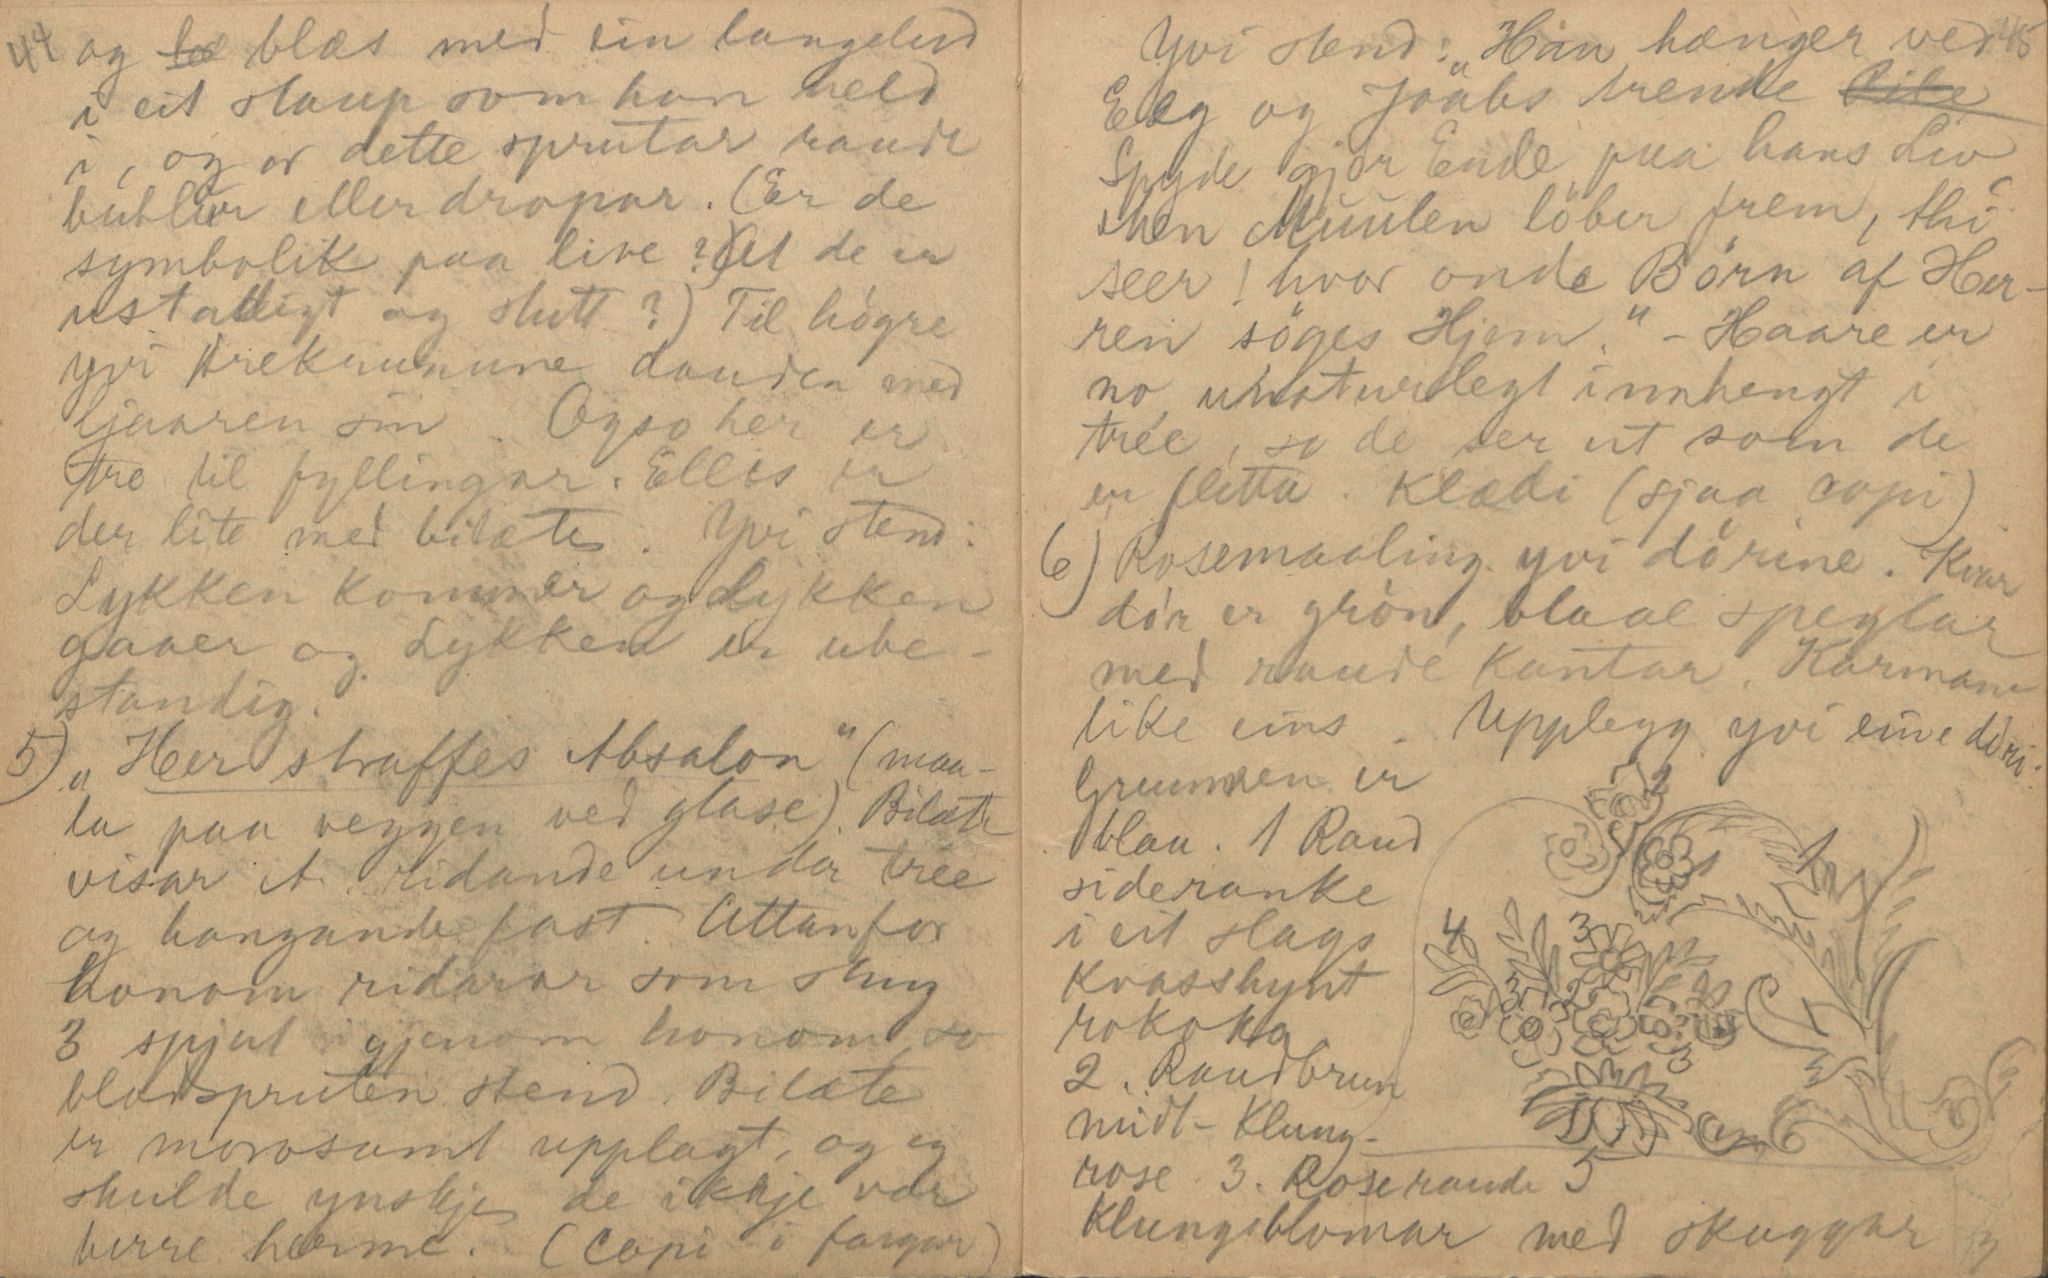 44
og blæs med ein
i eit staup som han held
i, og or dette sprutar raude
bublur eller dropar. (Er de
symbolik paa live? At de er
ustadigt og stutt?) Til høgre
yvi dauden med
ljaaren sin. Ogso her er
tre til fyllingar. Elles er
der lite med bilæte. Yvi stend:
Lykken kommer og Lykken
gaaer og Lykken er ube-
standig.
5) „Her straffes Absalon" (maa-
la paa veggen ved glase). Bilæte
visar A. ridande under tree
og hangande fast. Attanfor
honom ridarar som sting
3 spjut igjenom honom so
blodspruten stend. Bilæte
er morosamt upplagt, og eg
skulde ynskje de ikkje var
berre herme. (Copi i fargar)
45
Yvi stend: „Han hænger ved
Eeg og Joabs trende
Spyde gjør Ende paa hans Liv,
Men Muulen löber frem, thi
seer! hvor onde Börn af Her-
ren söges Hjem." - Haare er
no unaturlegt innhengt i
trée, so de ser ut som de
er fletta. Klædi (sjaa copi)
6) Rosemaaling yvi dörine. Kvar
dör er grön, blaae speglar
med raude kantar. Karmane
like eins. Upplegg yvi eine döri:
Grunnen er
blaa. 1 Raud
sideranke
i eit slags
kvasshynt
rokoko
2. Raudbrun
midt-klung-
rose 3. Roseraude 5
klungsblomar med skuggar
2
1
1
4
3
3
2
3
3